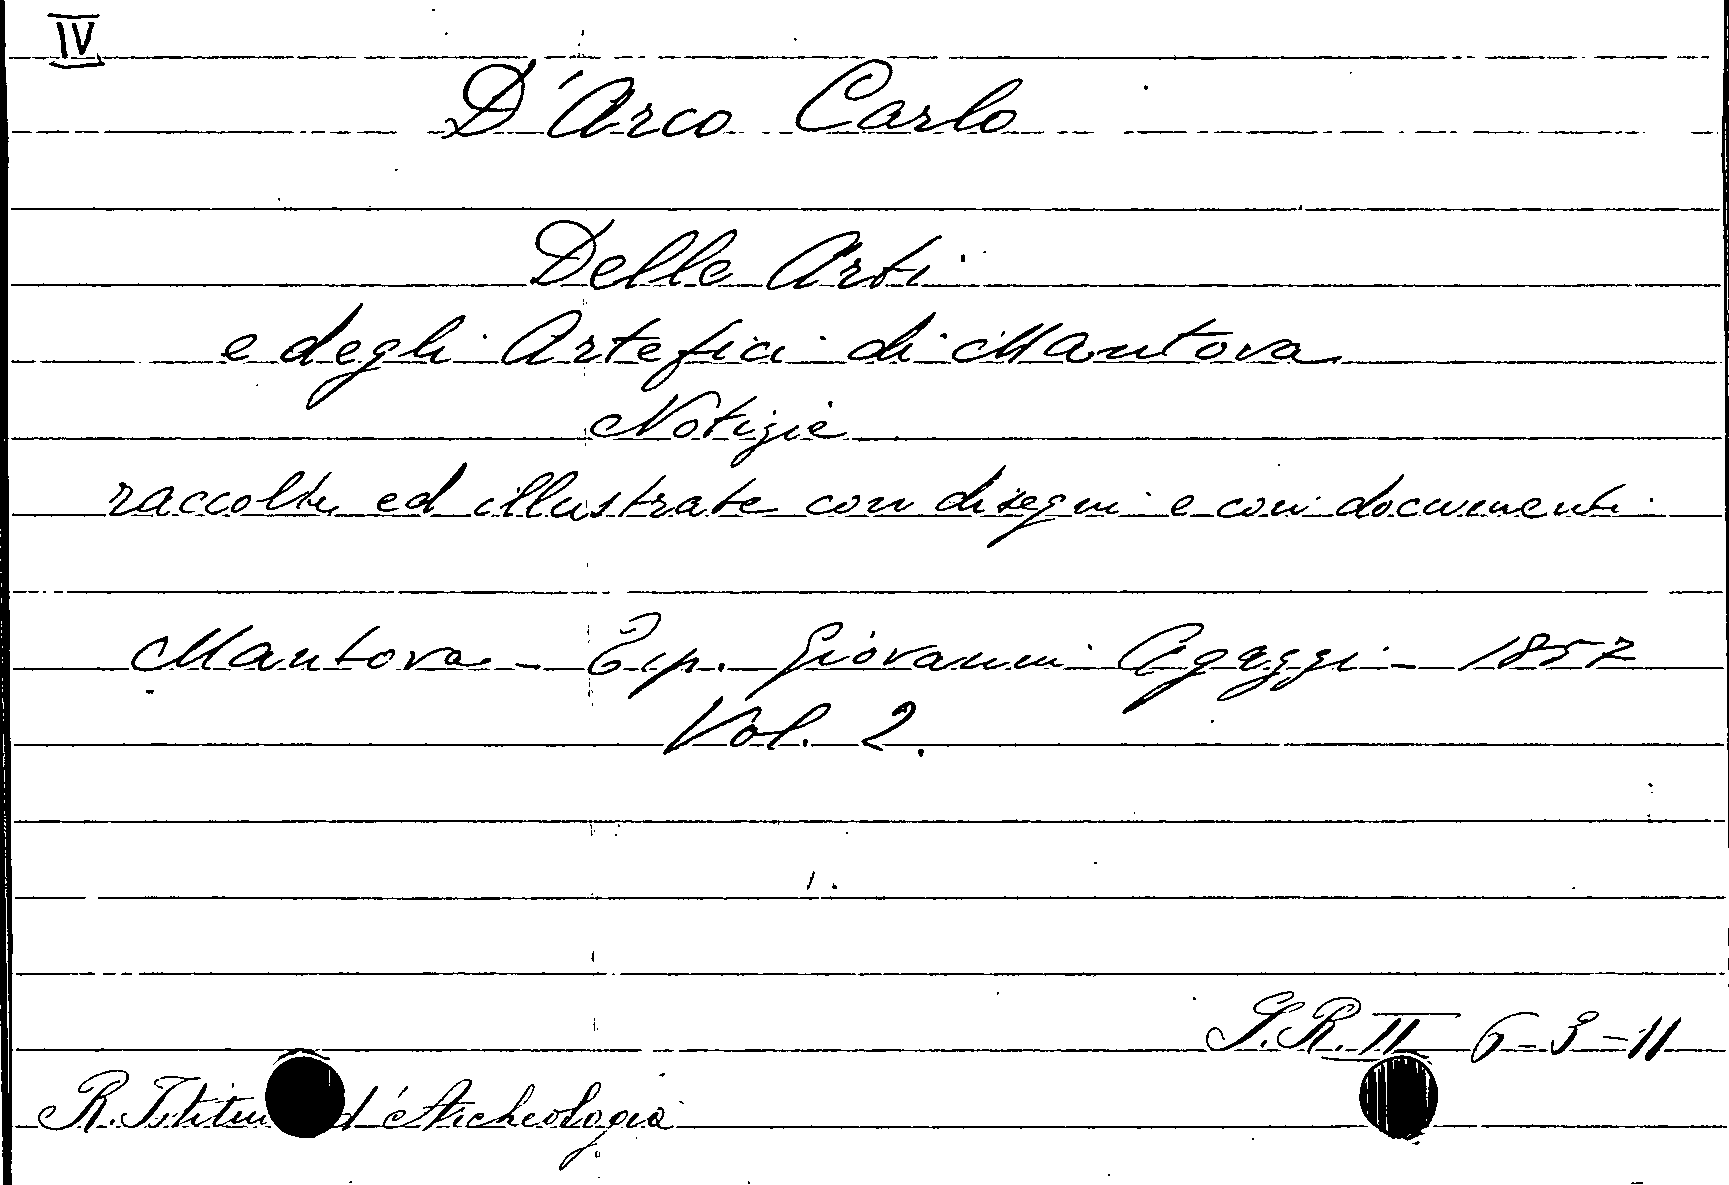 IV
D'Arco Carlo
Delle Arti
e degli Artefici di Mantova
Notizie
raccolte ed illustrate con disegni e con documenti
Mantova - Tip. Giovanni Agazzi - 1857
Vol. 2.
S.R. II 6-3-11
R. Istituto d'Archeologia